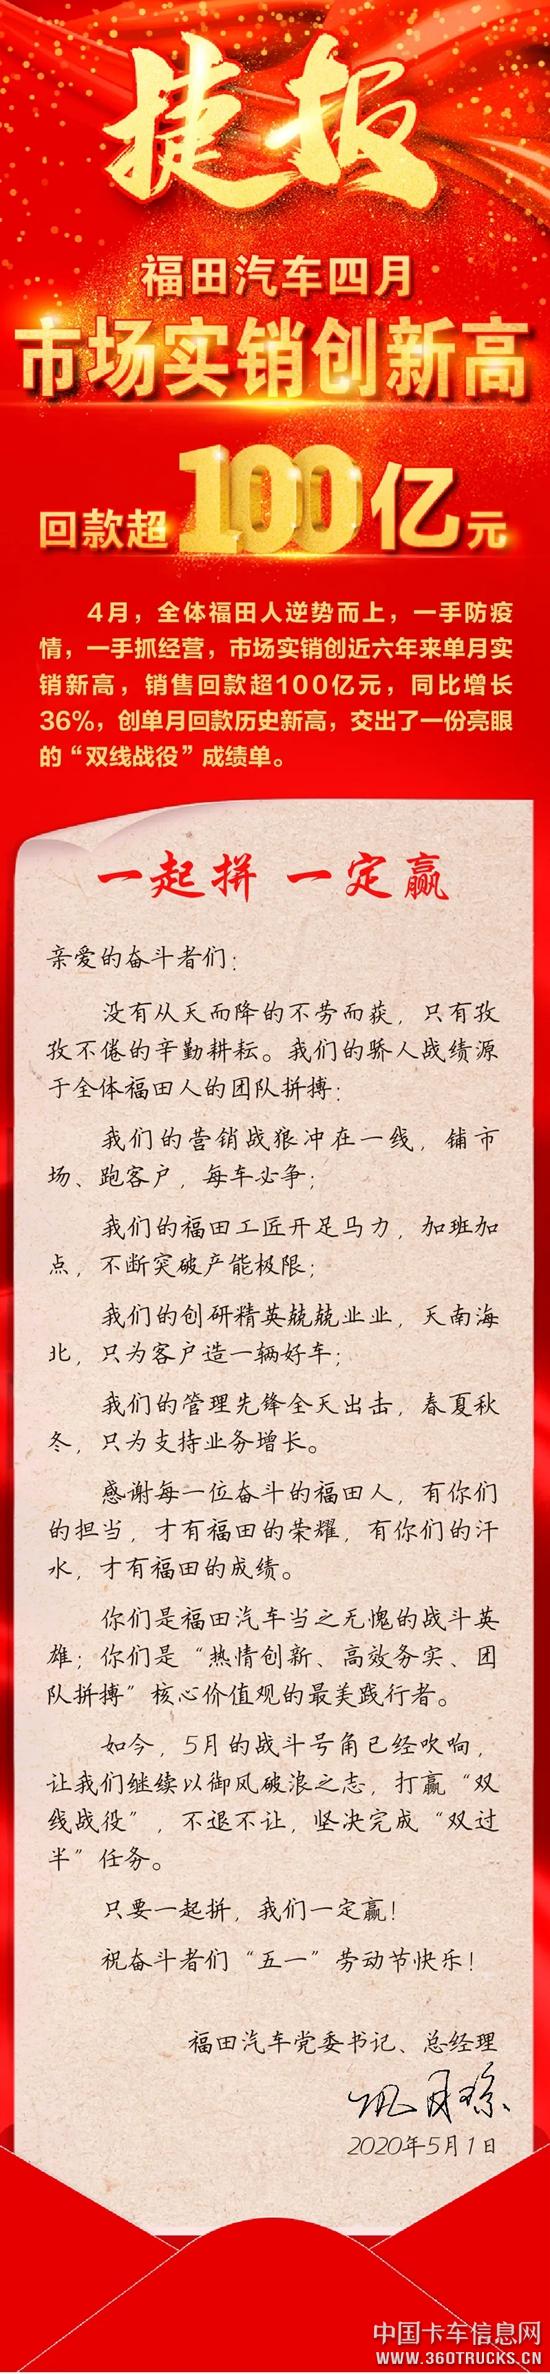 捷报
福田汽车四月
市场实销创新高
回款超100亿元
4月，全体福田人逆势而上，一手防疫
情，一手抓经营，市场实销创近六年来单月实
销新高，销售回款超100亿元，同比增长
36%，创单月回款历史新高，交出了一份亮眼
的“双线战役”成绩单。
一起拼 一定赢
亲爱的奋斗者们：
没有从天而降的不劳而获，只有孜
孜不倦的辛勤耕耘。我们的骄人战绩源
于全体福田人的团队拼搏：
我们的营销战狼冲在一线，铺市
场、跑客户，每车必争；
我们的福田工匠开足马力，加班加
点，不断突破产能极限；
我们的创研精英兢兢业业，天南海
北，只为客户造一辆好车；
我们的管理先锋全天出击，春夏秋
冬，只为支持业务增长。
感谢每一位奋斗的福田人，有你们
的担当，才有福田的荣耀，有你们的汗
水，才有福田的成绩。
你们是福田汽车当之无愧的战斗英
雄；你们是“热情创新、高效务实、团
队拼搏”核心价值观的最美践行者。
如今，5月的战斗号角已经吹响，
让我们继续以御风破浪之志，打赢“双
线战役”，不退不让，坚决完成“双过
半”任务。
只要一起拼，我们一定赢！
祝奋斗者们“五一”劳动节快乐！
福田汽车党委书记、总经理
巩月琼
2020年5月1日
中国卡车信息网
WWW.360TRUCKS.CN